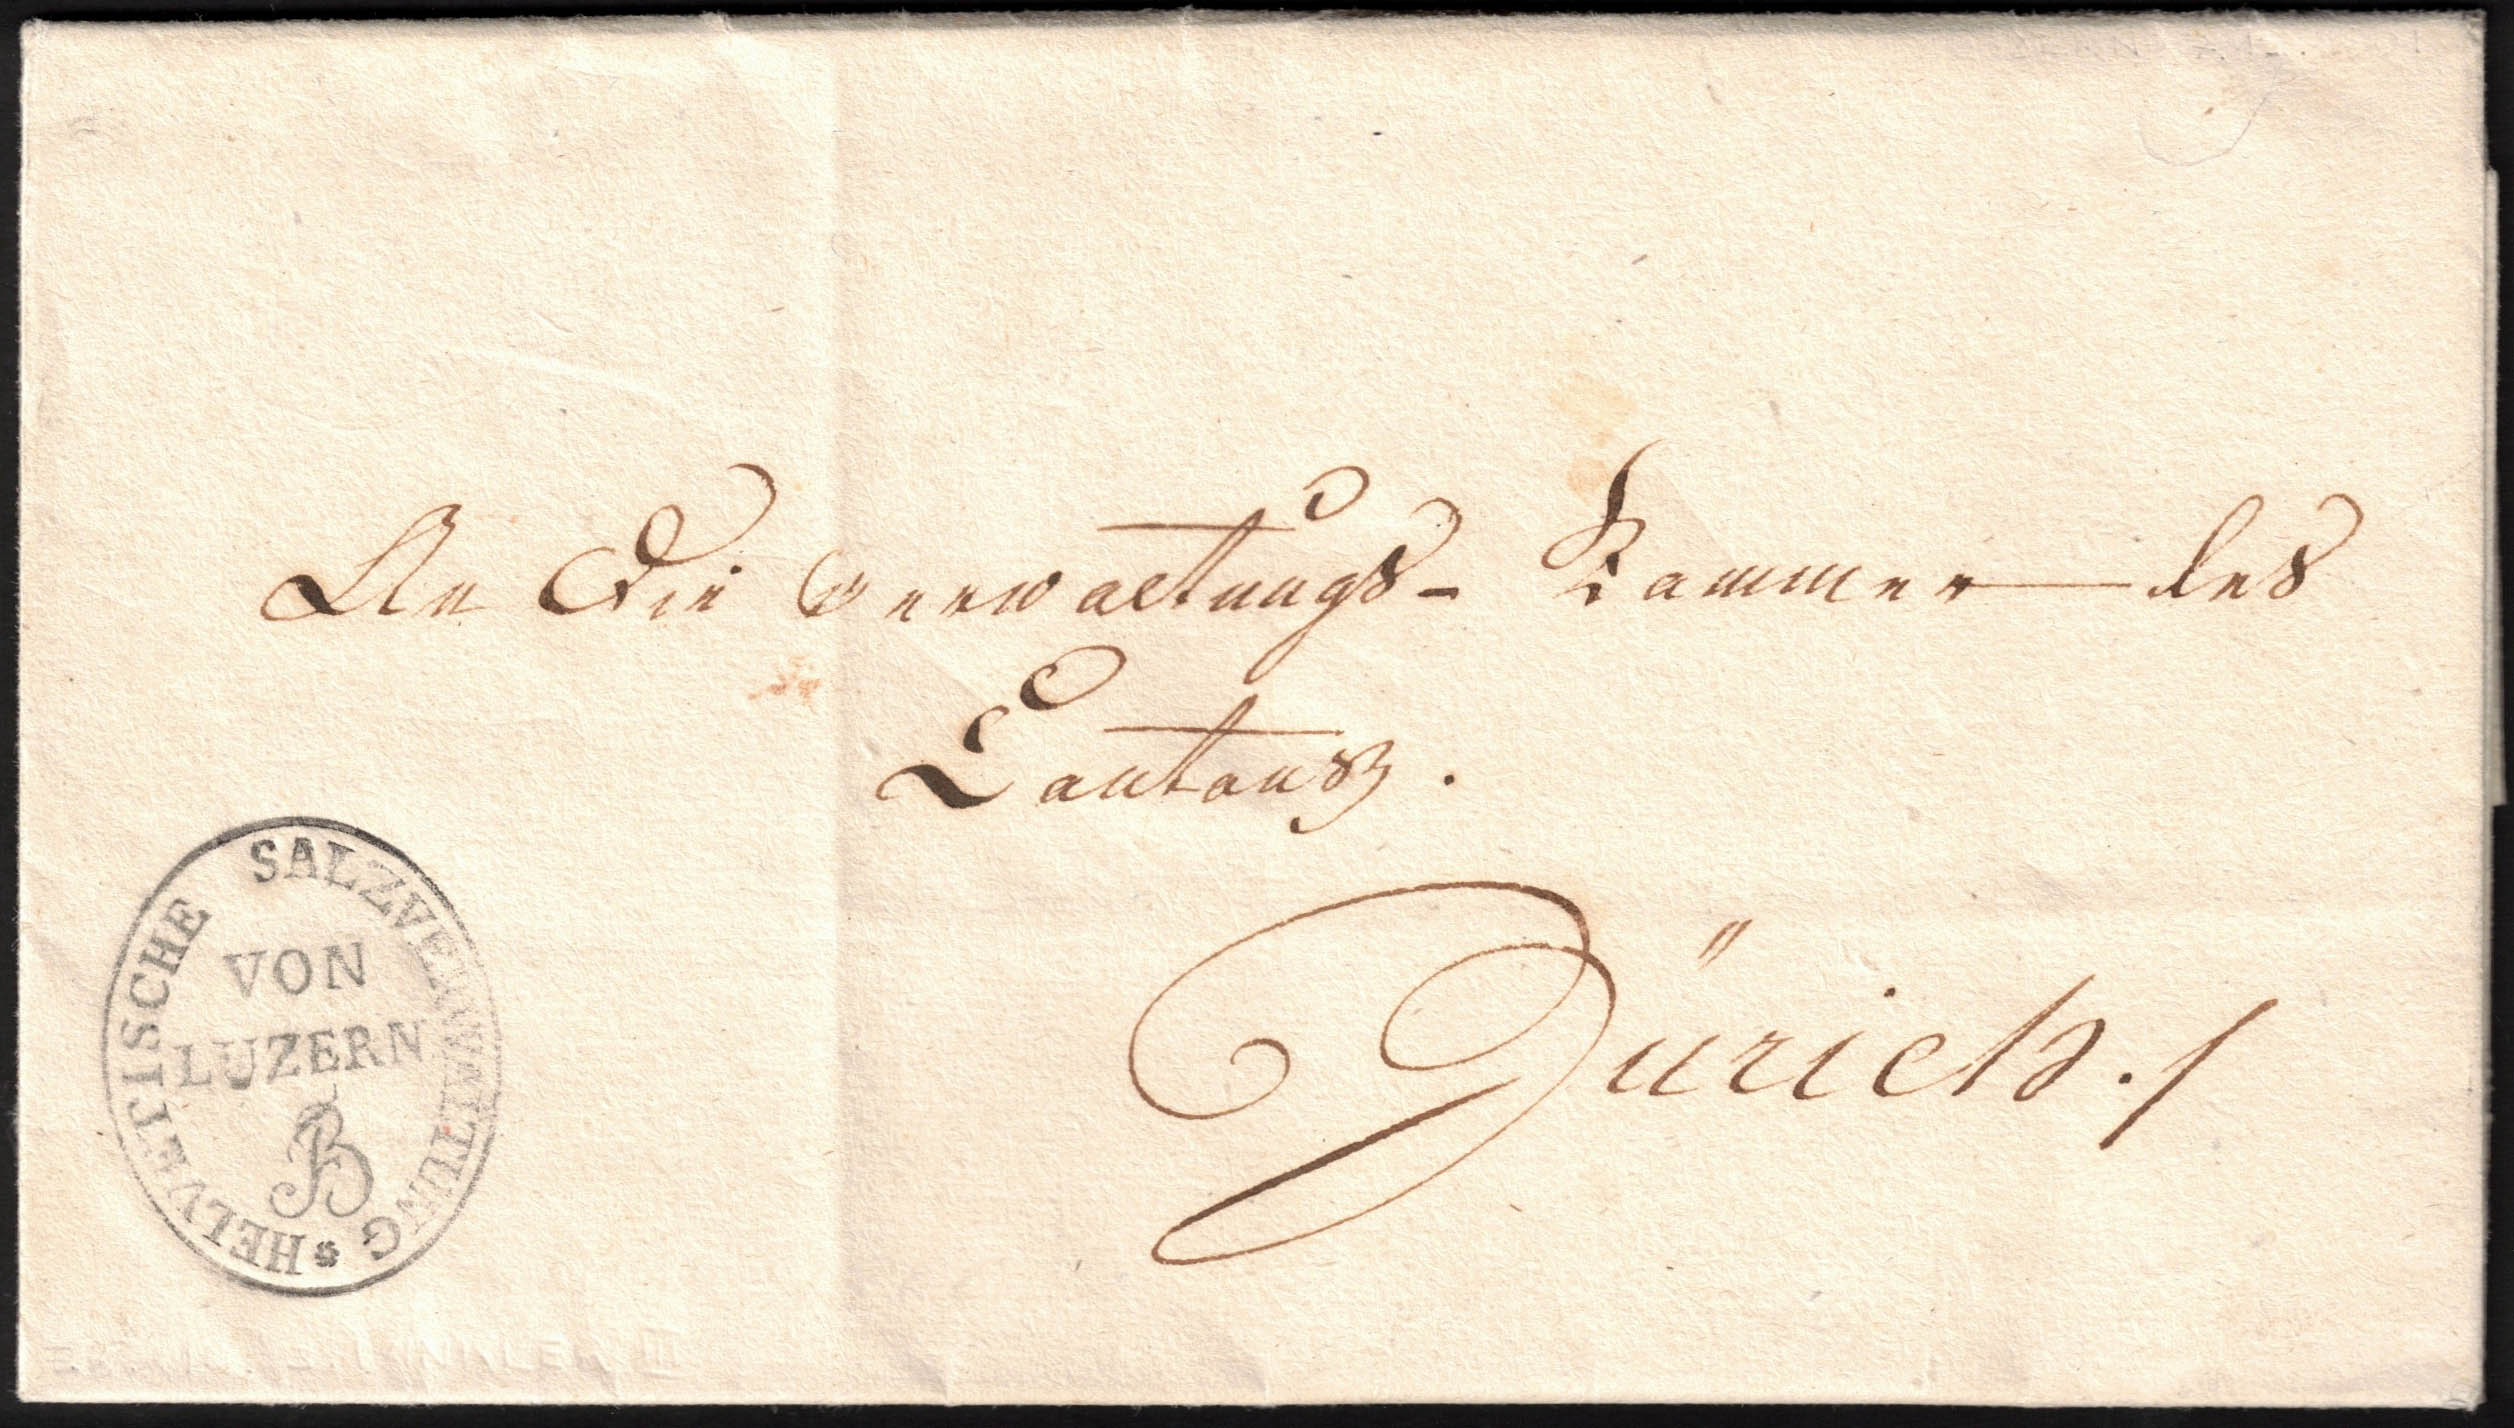 An Die Verwaltungs-Kammer des
Cantons.
Zürich./
HELVETISCHE SALZVERWALTUNG *
VON
LUZERN